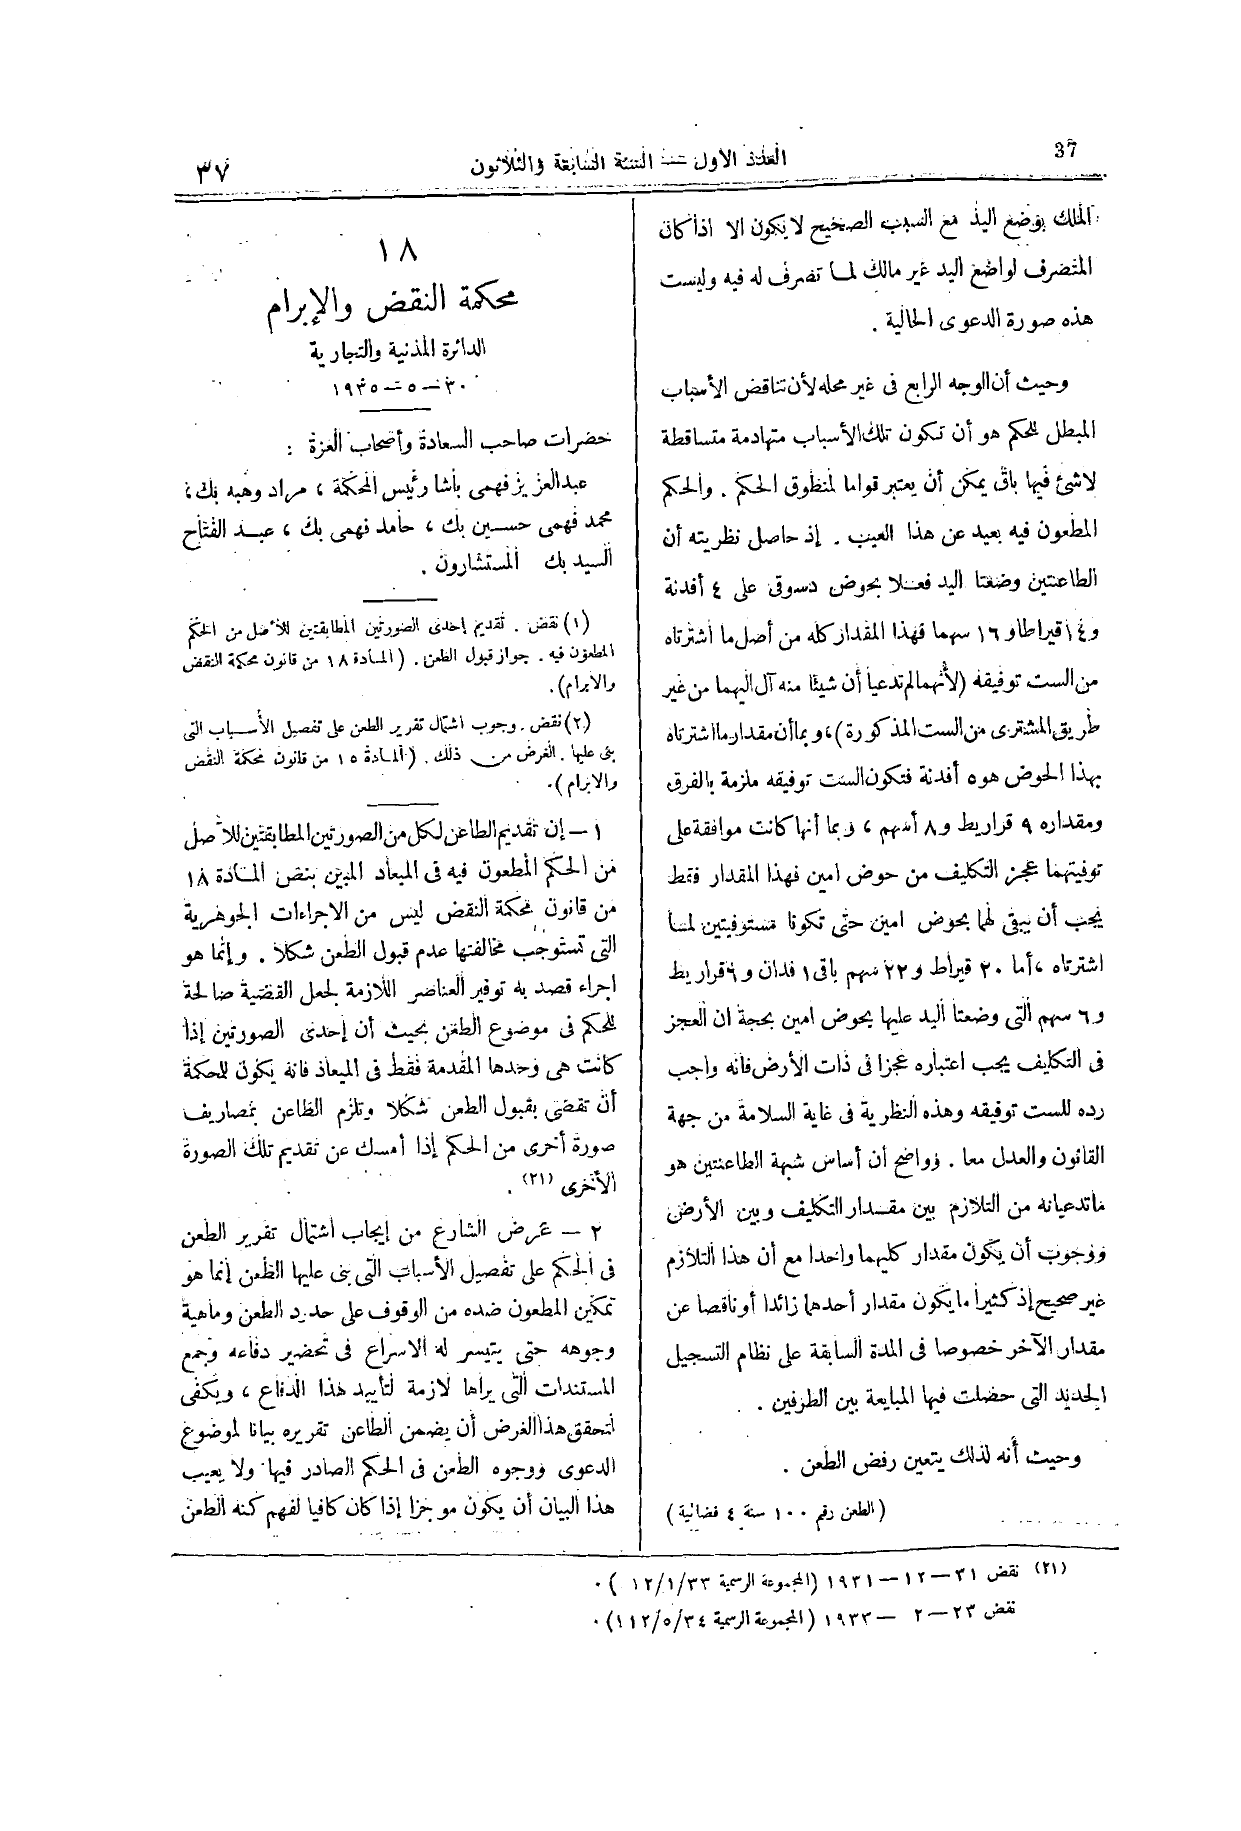 37
العدد الاول — السنة السابعة والثلاثون
٣٧
الملك بوضع اليد مع السبب الصحيح لا يكون الا اذا كان
المتصرف لواضع اليد غير مالك لما تصرف له فيه وليست
هذه صورة الدعوى الحالية .
وحيث أن الوجه الرابع فى غير محله لأن تناقض الأسباب
المبطل للحكم هو أن تكون تلك الأسباب متهادمة متساقطة
لاشئ فيها باق يمكن أن يعتبر قواما لمنطوق الحكم . والحكم
المطعون فيه بعيد عن هذا العيب . إذ حاصل نظريته أن
الطاعنتين وضعتا اليد فعلا بحوض دسوقى على ٤ أفدنة
و١٤ قيراطا و ١٦ سهما فهذا المقدار كله من أصل ما اشترتاه
من الست توفيقه (لأنهما لم تدعيا أن شيئا منه آل اليهما من غير
طريق المشترى من الست المذكورة)، وبما أن مقدار ما اشترتاه
بهذا الحوض هو ٥ أفدنة فتكون الست توفيقه ملزمة بالفرق
ومقداره ٩ قراريط و ٨ أسهم ، وبما أنها كانت موافقة على
توفيتهما عجز التكليف من حوض امين فهذا المقدار فقط
يجب أن يبقى لهما بحوض امين حتى تكونا مستوفيتين لما
اشترتاه ، أما ٢٠ قيراط و ٢٢ سهم باقى ١ فدان و ٦ قراريط
و ٦ سهم التى وضعتا اليد عليها بحوض امين بحجة ان العجز
فى التكليف يجب اعتباره عجزا فى ذات الأرض فانه واجب
رده للست توفيقه وهذه النظرية فى غاية السلامة من جهة
القانون والعدل معا . وواضح أن أساس شبهة الطاعنتين هو
ما تدعيانه من التلازم بين مقدار التكليف وبين الأرض
ووجوب أن يكون مقدار كليهما واحدا مع أن هذا التلازم
غير صحيح إذ كثيرا ما يكون مقدار أحدها زائدا أو ناقصا عن
مقدار الآخر خصوصا فى المدة السابقة على نظام التسجيل
الجديد التى حصلت فيها المبايعة بين الطرفين .
وحيث أنه لذلك يتعين رفض الطعن .
(الطعن رقم ١٠٠ سنة ٤ قضائية)
١٨
محكمة النقض والإبرام
الدائرة المدنية والتجارية
٣٠ — ٥ — ١٩٣٥
حضرات صاحب السعادة وأصحاب العزة :
عبد العزيز فهمى باشا رئيس المحكمة ، مراد وهبه بك ،
محمد فهمى حسين بك ، حامد فهمى بك ، عبد الفتاح
السيد بك المستشارون .
(١) نقض . تقديم إحدى الصورتين المطابقتين للأصل من الحكم
المطعون فيه . جواز قبول الطعن . (المادة ١٨ من قانون محكمة النقض
والابرام).
(٢) نقض . وجوب اشتمال تقرير الطعن على تفصيل الأسباب التى
بنى عليها . الغرض من ذلك . (المادة ١٥ من قانون محكمة النقض
والابرام).
١ — إن تقديم الطاعن لكل من الصورتين المطابقتين للأصل
من الحكم المطعون فيه فى الميعاد المبين بنص المادة ١٨
من قانون محكمة النقض ليس من الاجراءات الجوهرية
التى تستوجب مخالفتها عدم قبول الطعن شكلا . وإنما هو
اجراء قصد به توفير العناصر اللازمة لجعل القضية صالحة
للحكم فى موضوع الطعن بحيث أن إحدى الصورتين إذا
كانت هى وحدها المقدمة فقط فى الميعاد فانه يكون للمحكمة
أن تقضى بقبول الطعن شكلا وتلزم الطاعن بمصاريف
صورة أخرى من الحكم إذا أمسك عن تقديم تلك الصورة
الأخرى (٢١) .
٢ — غرض الشارع من إيجاب اشتمال تقرير الطعن
فى الحكم على تفصيل الأسباب التى بنى عليها الطعن إنما هو
تمكين المطعون ضده من الوقوف على حدود الطعن وماهية
وجوهه حتى يتيسر له الاسراع فى تحضير دفاعه وجمع
المستندات التى يراها لازمة لتأييد هذا الدفاع ، ويكفى
لتحقق هذا الغرض أن يضمن الطاعن تقريره بيانا لموضوع
الدعوى ووجوه الطعن فى الحكم الصادر فيها ولا يعيب
هذا البيان أن يكون موجزا إذا كان كافيا لفهم كنه الطعن
(٢١) نقض ٣١ — ١٢ — ١٩٣١ (المجموعة الرسمية ١٢/١/٣٣) .
نقض ٢٣ — ٢ — ١٩٣٣ (المجموعة الرسمية ١١٢/٥/٣٤) .